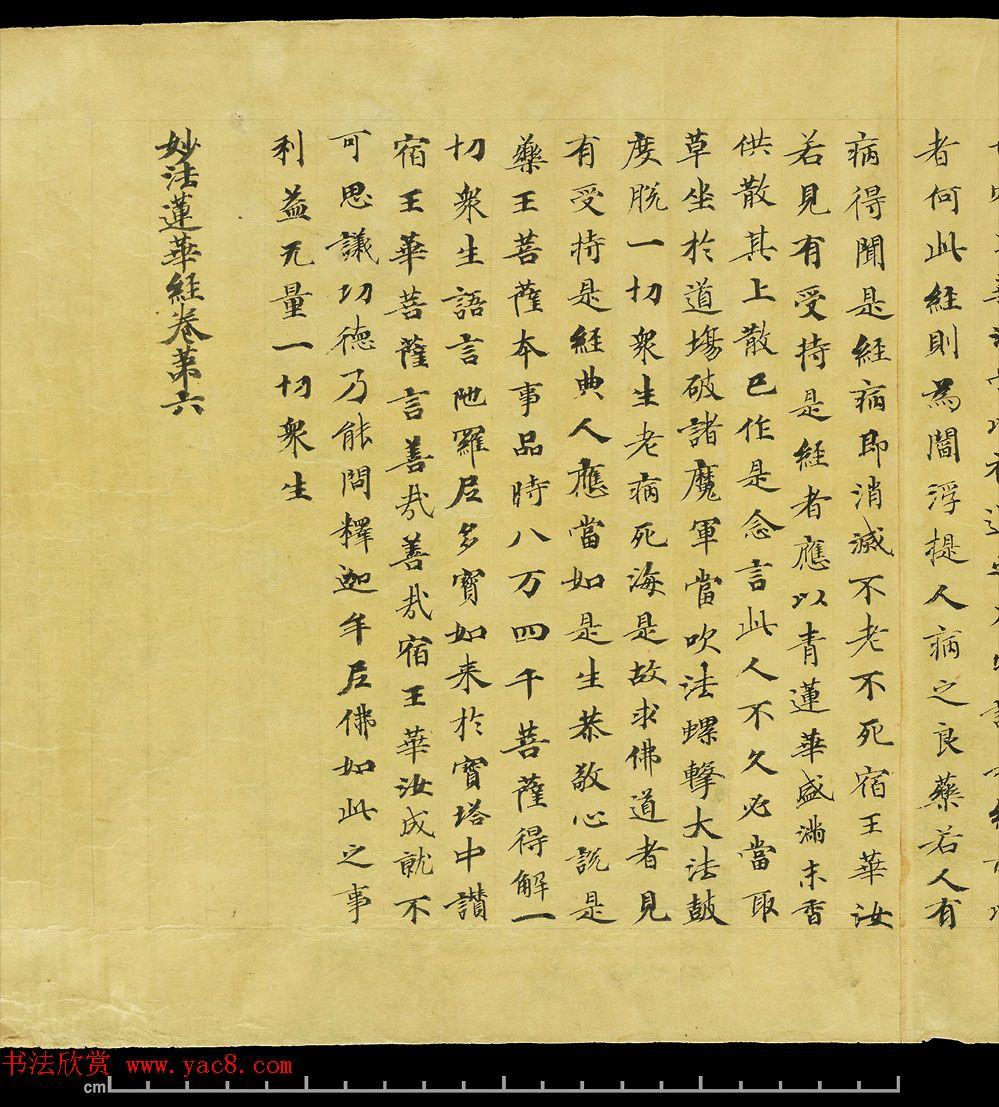 者何此經則為閻浮提人病之良藥若人有
病得聞是經病即消滅不老不死宿王華汝
若見有受持是經者應以青蓮華盛滿末香
供散其上散已作是念言此人不久必當取
草坐於道場破諸魔軍當吹法螺擊大法鼓
度脫一切衆生老病死海是故求佛道者見
有受持是經典人應當如是生恭敬心說是
藥王菩薩本事品時八万四千菩薩得解一
切衆生語言陁羅尼多寶如来於寶塔中讃
宿王華菩薩言善哉善哉宿王華汝成就不
可思議功德乃能問釋迦牟尼佛如此之事
利益无量一切衆生
妙法蓮華經卷第六
书法欣赏 www.yac8.com
cm